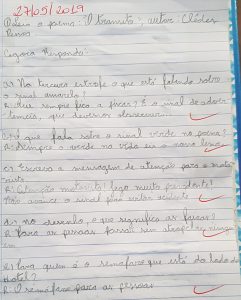 27/05/2019
Leia o poema: "O trânsito", autor: Clácio
Ramos
Agora Responda:
Na terceira estrofe o que está falando sobre
o sinal amarelo?
R: que sempre fica a piscar? É o sinal de adver
tencia, que devemos obedecer...
o que fala sobre o sinal verde no poema?
R: Sempre o verde na vida seu o nosso lema
C) Escreva a mensagem de atenção para o moto
rista
R: Atenção motorista! Seja muito prudente!
Não avance o sinal para evitar acidente
d) no desenho, o que significa as faixas?
R: Para as pessoas sem atropelar ningu
em
e) Para quem é o semáforo que está do lado do
hotel?
R: O semáforo para as pessoas